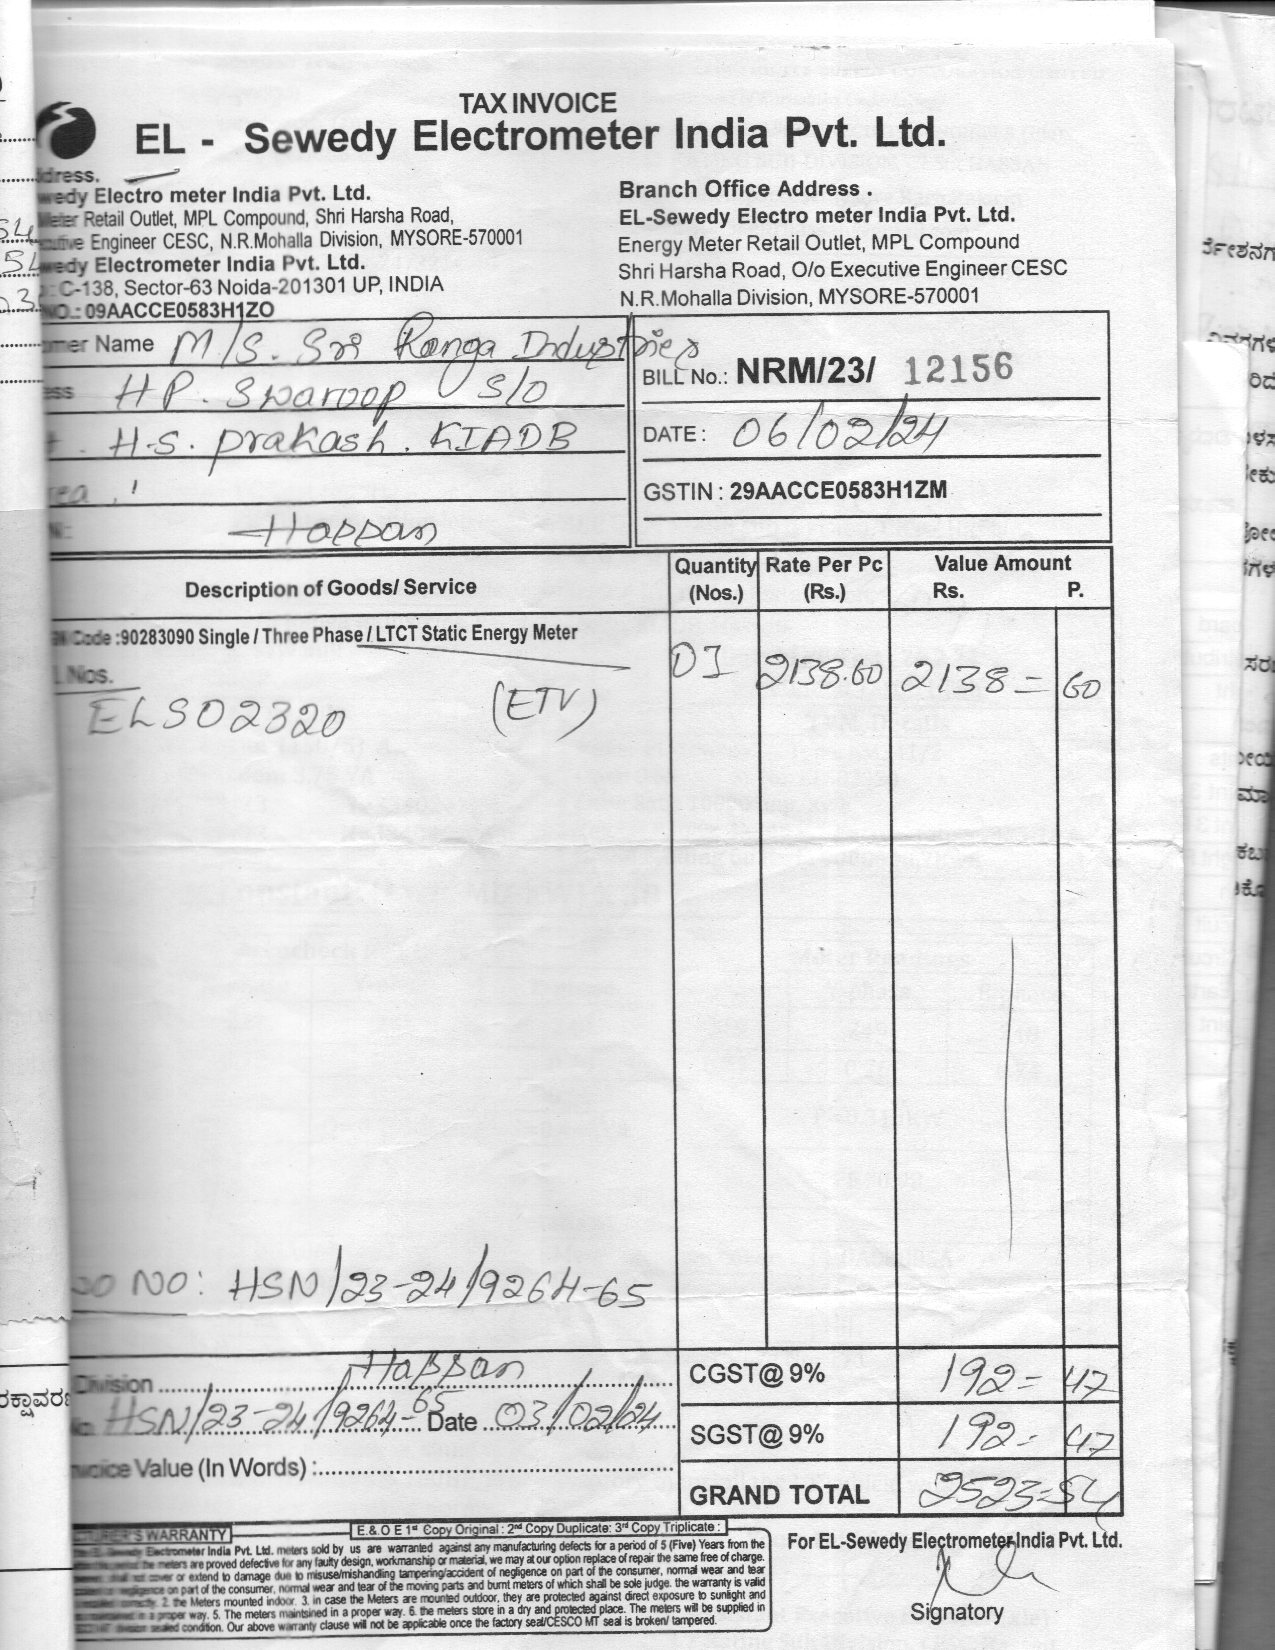 TAX INVOICE
EL - Sewedy Electrometer India Pvt. Ltd.
dress.
wedy Electro meter India Pvt. Ltd.
Meter Retail Outlet, MPL Compound, Shri Harsha Road,
cutive Engineer CESC, N.R.Mohalla Division, MYSORE-570001
wedy Electrometer India Pvt. Ltd.
: C-138, Sector-63 Noida-201301 UP, INDIA
NO.: 09AACCE0583H1ZO
Branch Office Address .
EL-Sewedy Electro meter India Pvt. Ltd.
Energy Meter Retail Outlet, MPL Compound
Shri Harsha Road, O/o Executive Engineer CESC
N.R.Mohalla Division, MYSORE-570001
omer Name M/S. Sri Ranga Industries
ess HP. Swaroop S/O
H.S. Prakash. KIADB
rea,
Hassan
BILL No.: NRM/23/ 12156
DATE: 06/02/24
GSTIN : 29AACCE0583H1ZM
Description of Goods/ Service
Quantity (Nos.)
Rate Per Pc (Rs.)
Value Amount
Rs. P.
Code :90283090 Single / Three Phase / LTCT Static Energy Meter
Nos.
ELS02320 (ETV)
01 2138.60 2138= 60
NO: HSN/23-24/9264-65
Division Hassan
No. HSN/23-24/9264-65 Date 03/02/24
nvoice Value (In Words) :
CGST@ 9% 192= 47
SGST@ 9% 192- 47
GRAND TOTAL 2523=54
E.& O E 1st Copy Original : 2nd Copy Duplicate: 3rd Copy Triplicate :
TURER'S WARRANTY
Electrometer India Pvt. Ltd. meters sold by us are warranted against any manufacturing defects for a period of 5 (Five) Years from the
the meters are proved defective for any faulty design, workmanship or material, we may at our option replace of repair the same free of charge.
cover or extend to damage due to misuse/mishandling tampering/accident of negligence on part of the consumer, normal wear and tear
negligence on part of the consumer, normal wear and tear of the moving parts and burnt meters of which shall be sole judge. the warranty is valid
2. the Meters mounted indoor. 3. in case the Meters are mounted outdoor, they are protected against direct exposure to sunlight and
in a proper way. 5. The meters maintsined in a proper way. 6. the meters store in a dry and protected place. The meters will be supplied in
sealed condition. Our above warranty clause will not be applicable once the factory seal/CESCO MT seal is broken/ tampered.
For EL-Sewedy Electrometer India Pvt. Ltd.
Signatory